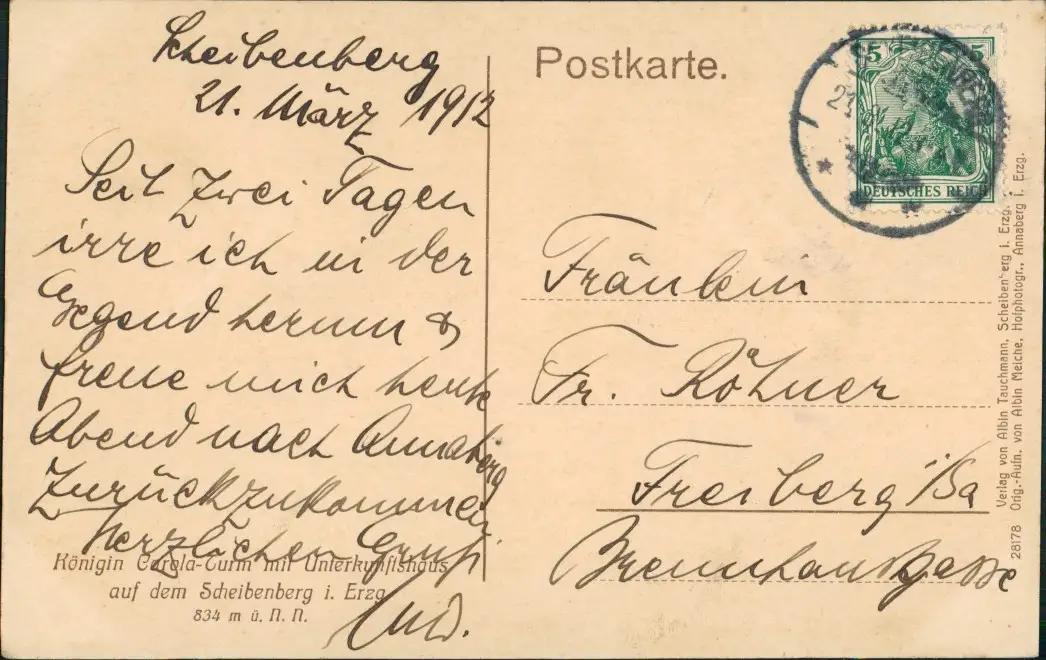 Scheibenberg
21. März 1912
Seit zwei Tagen
irre ich in der
Gegend herum &
freue mich heute
Abend nach Annaberg
zurückzukommen
Herzlichen Gruß
Königin Carola-Turm mit Unterkunftshaus
auf dem Scheibenberg i. Erzg.
834 m ü. N. N.
Postkarte.
5 5
DEUTSCHES REICH
Fräulein
Fr. Röhner
Freiberg i/Sa
Brennhausgasse
Verlag von Albin Tauchmann, Scheibenberg i. Erzg.
28178 Orig.-Aufn. von Albin Meiche, Hofphotogr., Annaberg i. Erzg.